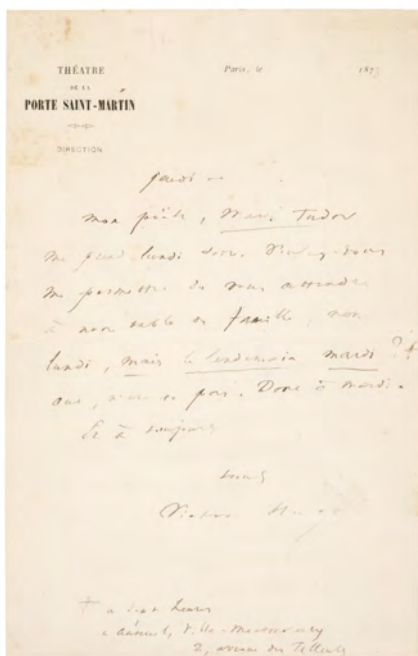 THÉATRE
DE LA
PORTE SAINT-MARTIN
DIRECTION
Paris, le 187
Jeudi
mon poëte, Marie Tudor
me prend lundi soir. Voulez-vous
me permettre de vous attendre
à notre table de famille, non
lundi, mais le lendemain mardi ? +
oui, n'est-ce pas. Donc à mardi.
Et à toujours
Victor Hugo
+ à sept heures
à Auteuil, Villa-Montmorency
2, avenue des Tilleuls